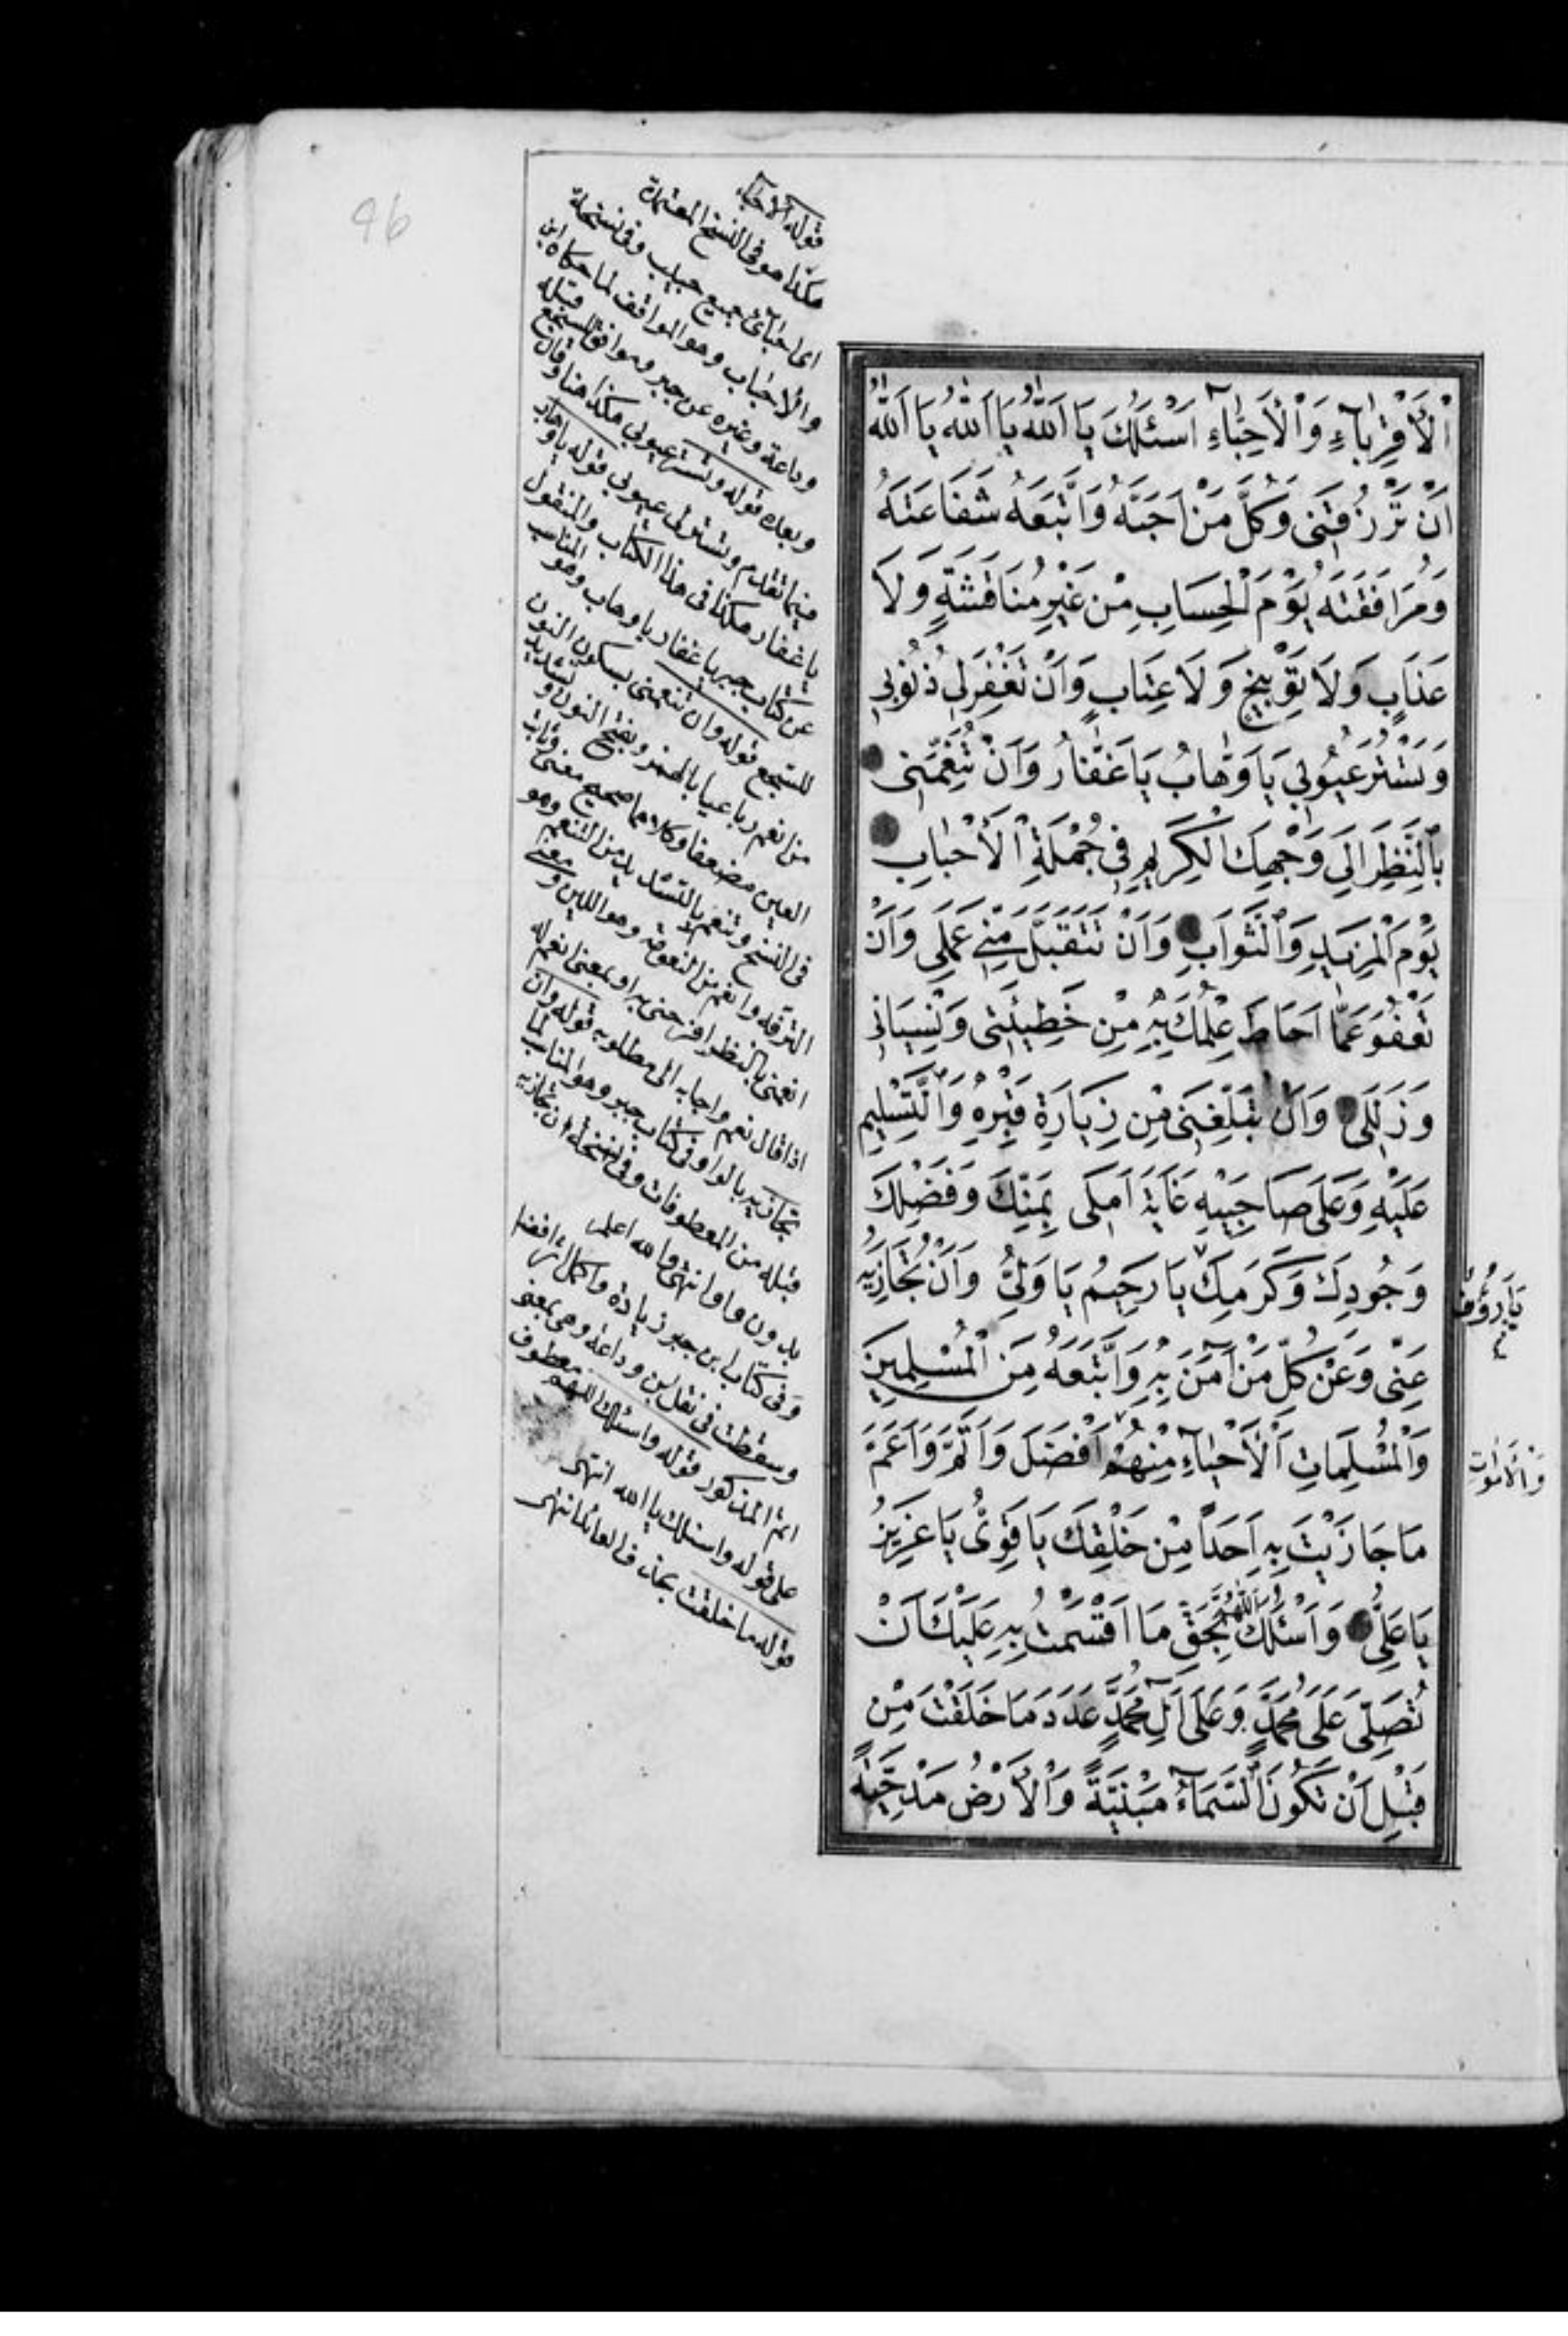 اْلْأَقْرِبَآءِ وَاْلْأَحِبَّاءِ اَسْئَلُكَ يَا اَللّٰهُ يَا اَللّٰهُ يَا اَللّٰهُ
اَنْ تَرْزُقَنِى وَكُلَّ مَنْ اَحَبَّهُ وَاتَّبَعَهُ شَفَاعَتَهُ
وَمُرَافَقَتَهُ يَوْمَ اْلحِسَابِ مِنْ غَيْرِ مُنَاقَشَةٍ وَلَا
عَذَابٍ وَلَا تَوْبِيْخٍ وَلَا عِتَابٍ وَاَنْ تَغْفِرَلِى ذُنُوبِى
وَتَسْتُرَ عُيُوبِى يَا وَهَّابُ يَا غَفَّارُ وَاَنْ تُنْعِمَنِى
بِالنَّظَرِ اِلَى وَجْهِكَ الْكَرِيمِ فِى جُمْلَةِ اْلْأَحْبَابِ
يَوْمَ الْمَزِيدِ وَالثَّوَابِ وَاَنْ تَتَقَبَّلَ مِنِّى عَمَلِى وَاَنْ
تَعْفُوَ عَمَّا اَحَاطَ عِلْمُكَ بِهِ مِنْ خَطِيئَتِى وَنِسْيَانِى
وَزَلَلِى وَاَنْ تُبَلِّغَنِى مِنْ زِيَارَةِ قَبْرِهِ وَالتَّسْلِيمِ
عَلَيْهِ وَعَلَى صَاحِبَيْهِ غَايَةَ اَمَلِى بِمَنِّكَ وَفَضْلِكَ
وَجُودِكَ وَكَرَمِكَ يَا رَحِيمُ يَا وَلِىُّ وَاَنْ تُجَازِيَهُ
يَا رَؤُفُ
عَنِّى وَعَنْ كُلِّ مَنْ اٰمَنَ بِهِ وَاتَّبَعَهُ مِنَ الْمُسْلِمِينَ
وَالْمُسْلِمَاتِ اْلْأَحْيَآءِ مِنْهُمْ اَفْضَلَ وَاَتَمَّ وَاَعَمَّ
وَالْأَمْوَاتِ
مَا جَازَيْتَ بِهِ اَحَدًا مِنْ خَلْقِكَ يَا قَوِىُّ يَا عَزِيزُ
يَا عَلِىُّ وَاَسْئَلُكَ اَللّٰهُمَّ بِحَقِّ مَا اَقْسَمْتُ بِهِ عَلَيْكَ اَنْ
تُصَلِّىَ عَلَى مُحَمَّدٍ وَعَلَى اٰلِ مُحَمَّدٍ عَدَدَ مَا خَلَقْتَ مِنْ
قَبْلِ اَنْ تَكُونَ السَّمَآءُ مَبْنِيَّةً وَاْلْأَرْضُ مَدْحِيَّةً
قوله الاحباء
هكذا هو فى النسخ المعتمدة
اى احبائى جميع حبيب وفى نسخة
والاحباب وهو الموافق لما حكاه ابن
وداعة وغيره عن جبر وموافق للسجع قبله
وبعده قوله وتستر عيوبى هكذا هنا وقال
فيما تقدم وتستر لى عيوبى قوله يا وهاب
يا غفار هكذا فى هذا الكتاب والمنقول
عن كتاب جبر يا غفار يا وهاب وهو المناسب
للسجع قوله وان تنعمنى بسكون النون
من انعم رباعيا بالهمز وبفتح النون وتشديد
العين مضعفا وكلاهما صحيح معنى وثابت
فى النسخ وتنعم بالتشديد من التنعم وهو
الترفه وانعم من النعومة وهو اللين ومعنى
انعمنى بالنظر افرحنى به او بمعنى انعم له
اذا قال نعم واجابه الى مطلوبه قوله وان
تجازيه بالواو فى كتاب جبر وهو المناسب لما
قبله من المعطوفات وفى نسخة ان تجازيه
بدون واو انتهى والله اعلم
وفى كتاب ابن جبر زيادة واكمل اثر افضل
وسقطت فى نقل ابن وداعة وهى بمعنى
اتم المذكور قوله واسئلك اللهم معطوف
على قوله واسئلك يا الله انتهى
قوله ما خلقت بحذف العائد انتهى
96